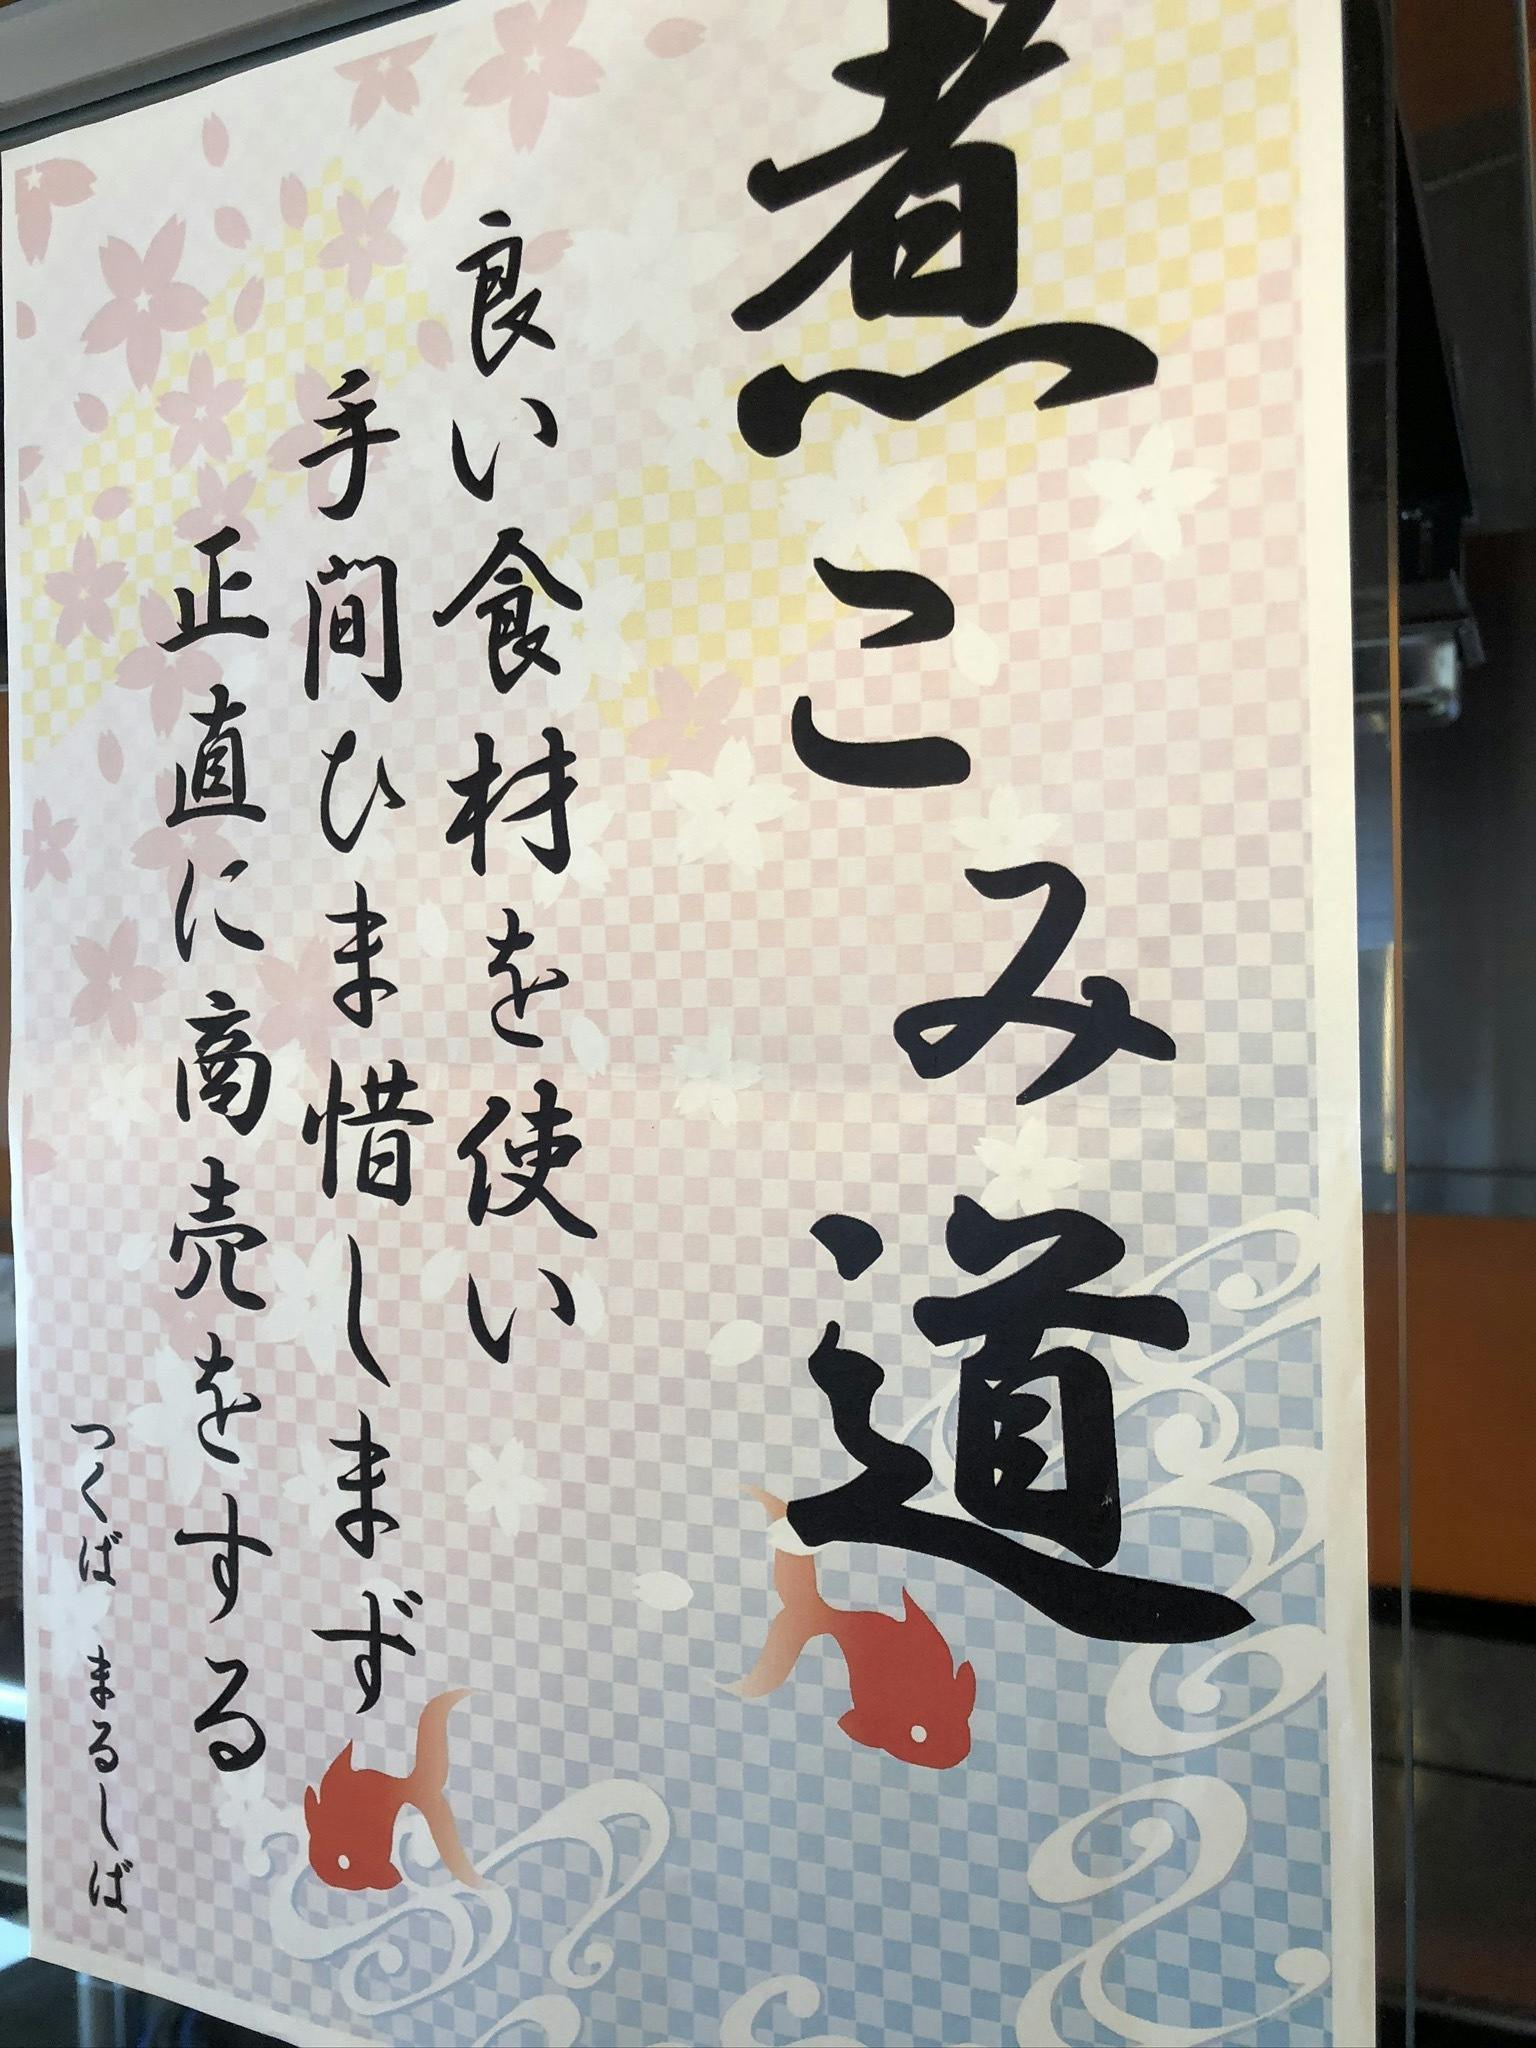 煮こみ道
良い食材を使い
手間ひま惜しまず
正直に商売をする
つくば まるしば